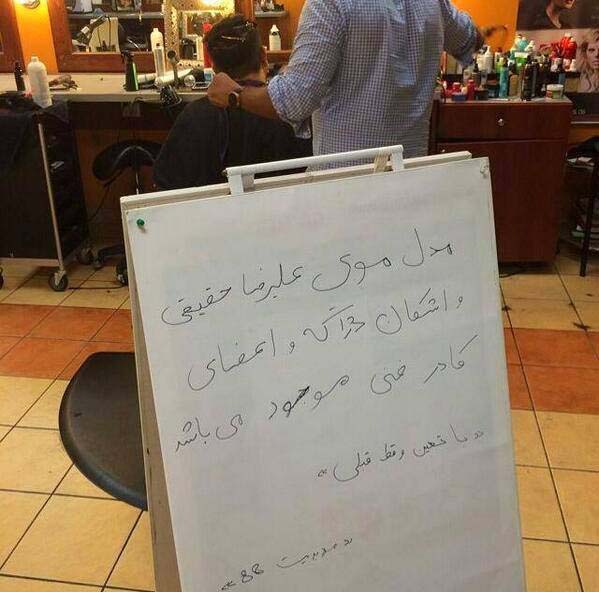 مدل موی علیرضا حقیقی
و اشکان دژاگه و اعضای
کادر فنی موجود می باشد
«با تعین وقط قبلی»
«مدیریت